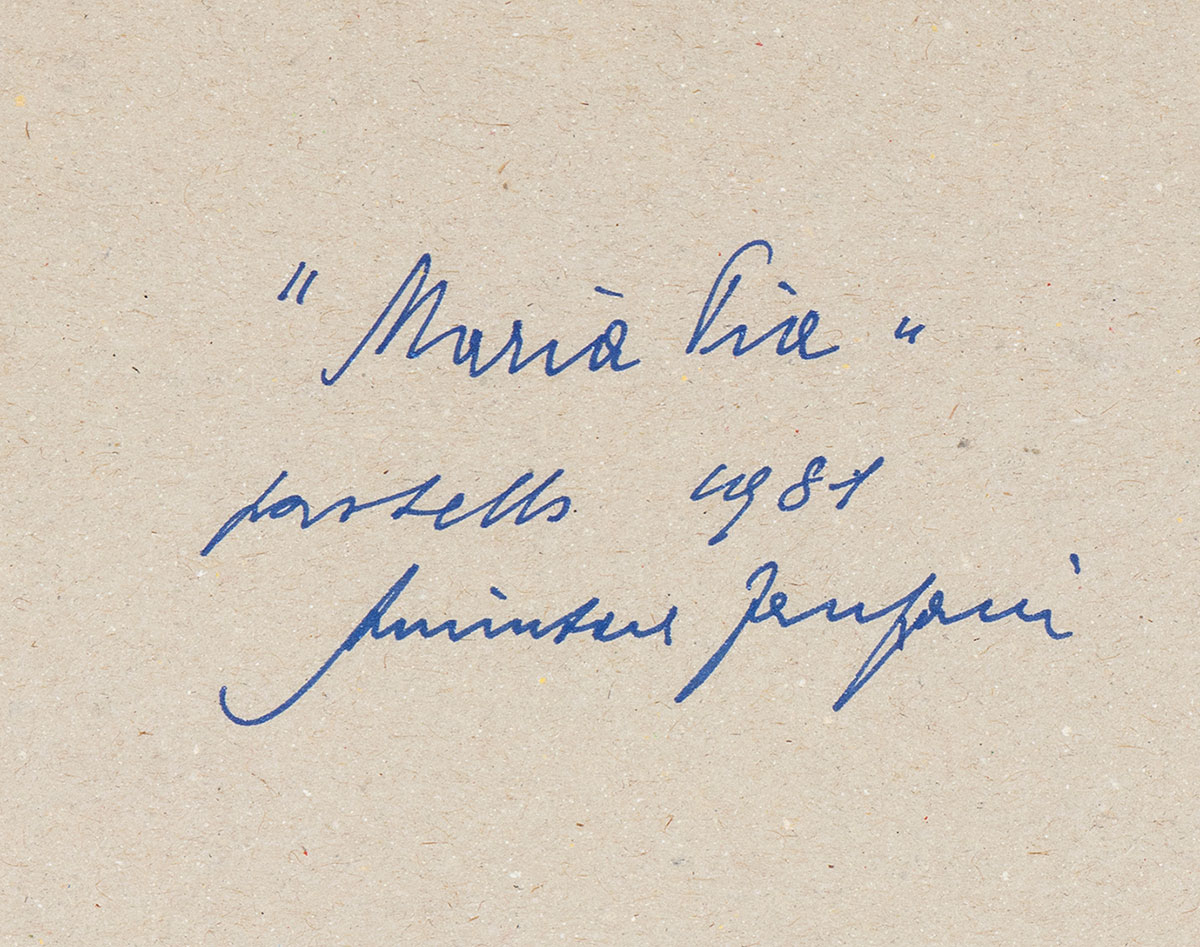 "Maria Pia"
pastello 1981
Amintore Fanfani